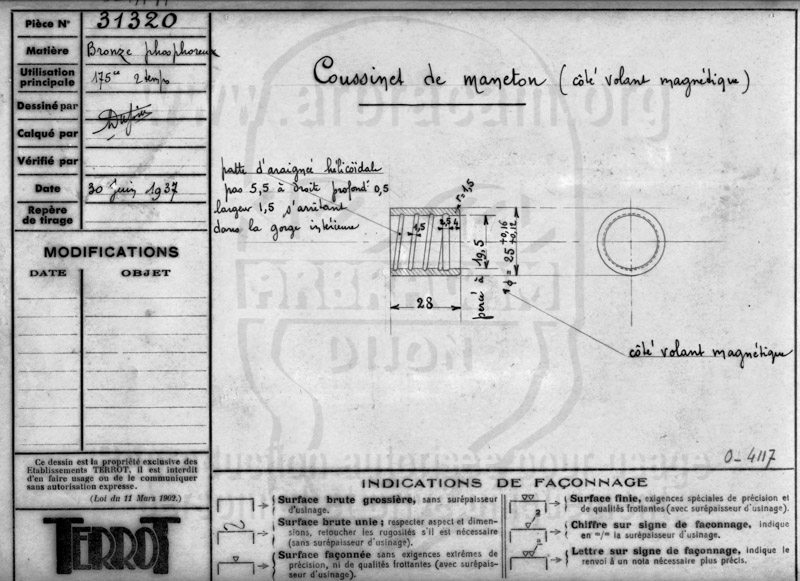 Pièce N° 31320
Matière Bronze phosphoreux
Utilisation principale 175cc 2 temps
Dessiné par
Calqué par
Vérifié par
Date 30 Juin 1937
Repère de tirage
MODIFICATIONS
DATE OBJET
Ce dessin est la propriété exclusive des
Etablissements TERROT, il est interdit
d'en faire usage ou de le communiquer
sans autorisation expresse.
(Loi du 11 Mars 1902.)
TERROT
Coussinet de maneton (côté volant magnétique)
patte d'araignée hélicoïdale
pas 5,5 à droite profond' 0,5
largeur 1,5 s'arrêtant
dans la gorge intérieure
r=1,5
1,5
2,5
4
28
percé à 19,5
ϕ = 25 +0,16 +0,12
côté volant magnétique
0-4117
www.arbracam.org
ARBRACAM
DIJON
INDICATIONS DE FAÇONNAGE
Surface brute grossière, sans surépaisseur
d'usinage.
Surface brute unie; respecter aspect et dimen-
sions, retoucher les rugosités s'il est nécessaire
(sans surépaisseur d'usinage).
Surface façonnée sans exigences extrêmes de
précision, ni de qualités frottantes (avec surépais-
seur d'usinage).
Surface finie, exigences spéciales de précision et
de qualités frottantes (avec surépaisseur d'usinage).
2
Chiffre sur signe de façonnage, indique
en m/m la surépaisseur d'usinage.
a
Lettre sur signe de façonnage, indique le
renvoi à un nota nécessaire plus précis.